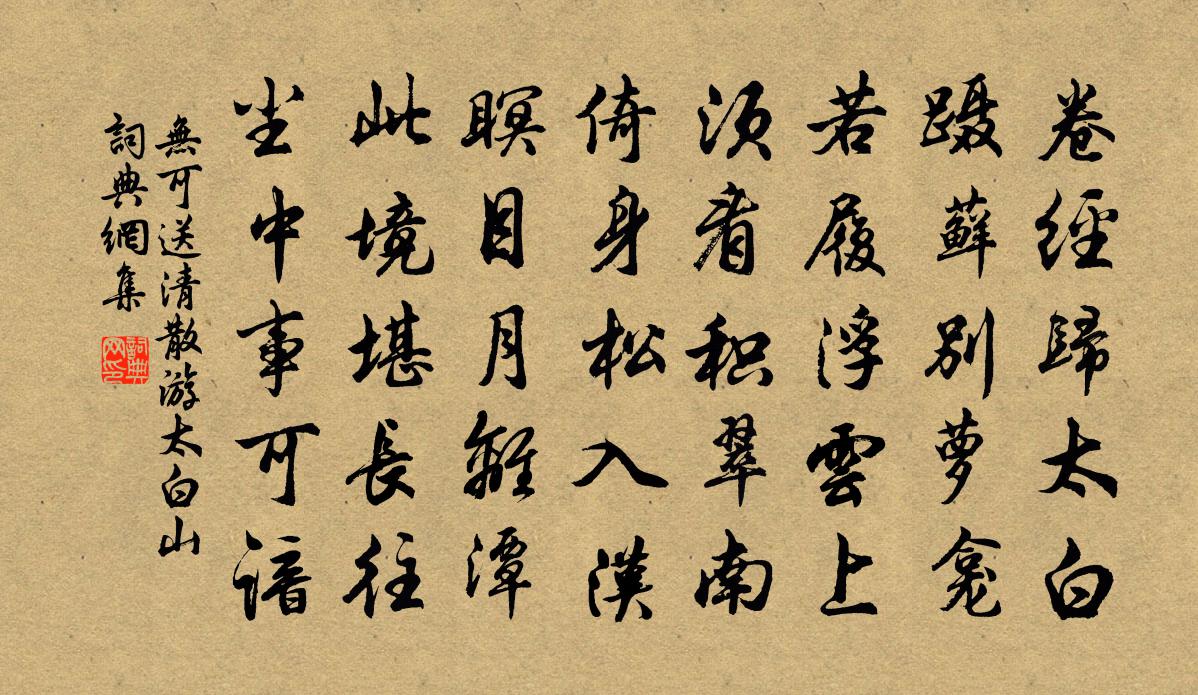 卷經歸太白
蹑蘚別萝龛
若履浮雲上
須看积翠南
倚身松入漢
瞑目月離潭
此境堪長往
尘中事可諳
無可送清散游太白山
詞典網集
詞典网印